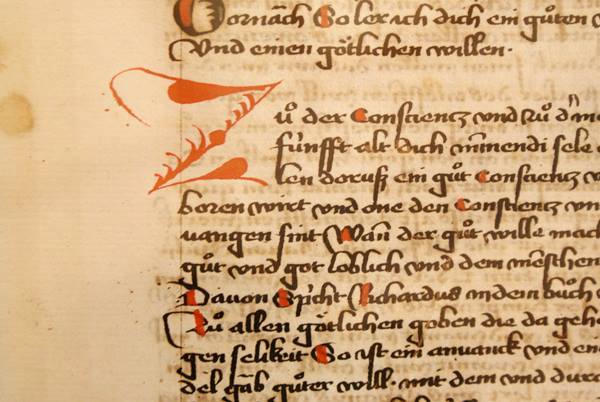 Dornach So ler ich dich ein gůten
vnd einen götlichen willen.
Zů der Conscientz vnd zů
fúnfft alt dich mindendi sele
len doruß ein gůt Conscientz
boren wirt vnd one den Conscientz
uangen sint Wañ der gůt wille mach
gůt vnd got loblich vnd dem menschen
Dauon Spricht Richardus in dem bůch
Zů allen götlichen goben die da geho
gen selikeit So ist ein anuanck vnd ein
del gab gůter will. mit dem vnd durch